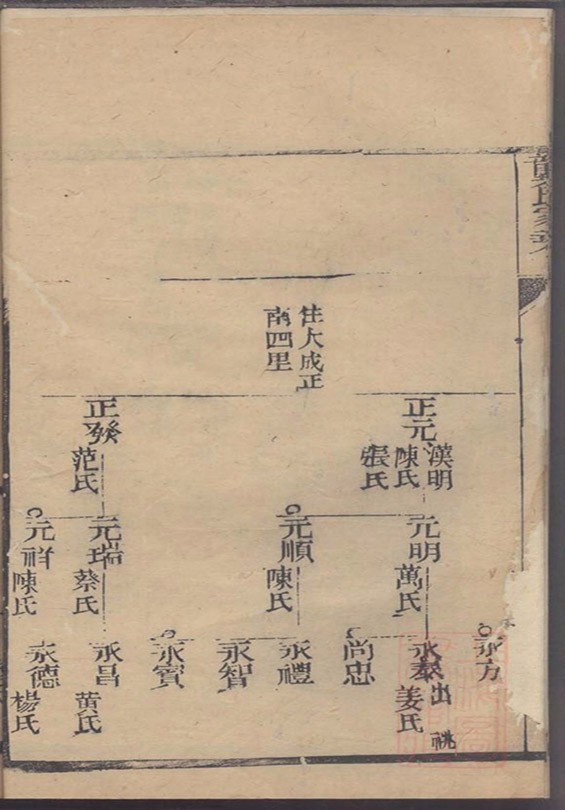 住大成正
南四里
正元
漢明
陳氏
張氏
正發
范氏
元明
萬氏
元順
陳氏
元瑞
蔡氏
元祥
陳氏
永方
永泰
出祧
姜氏
尚忠
永禮
永智
永賓
永昌
黄氏
永德
楊氏